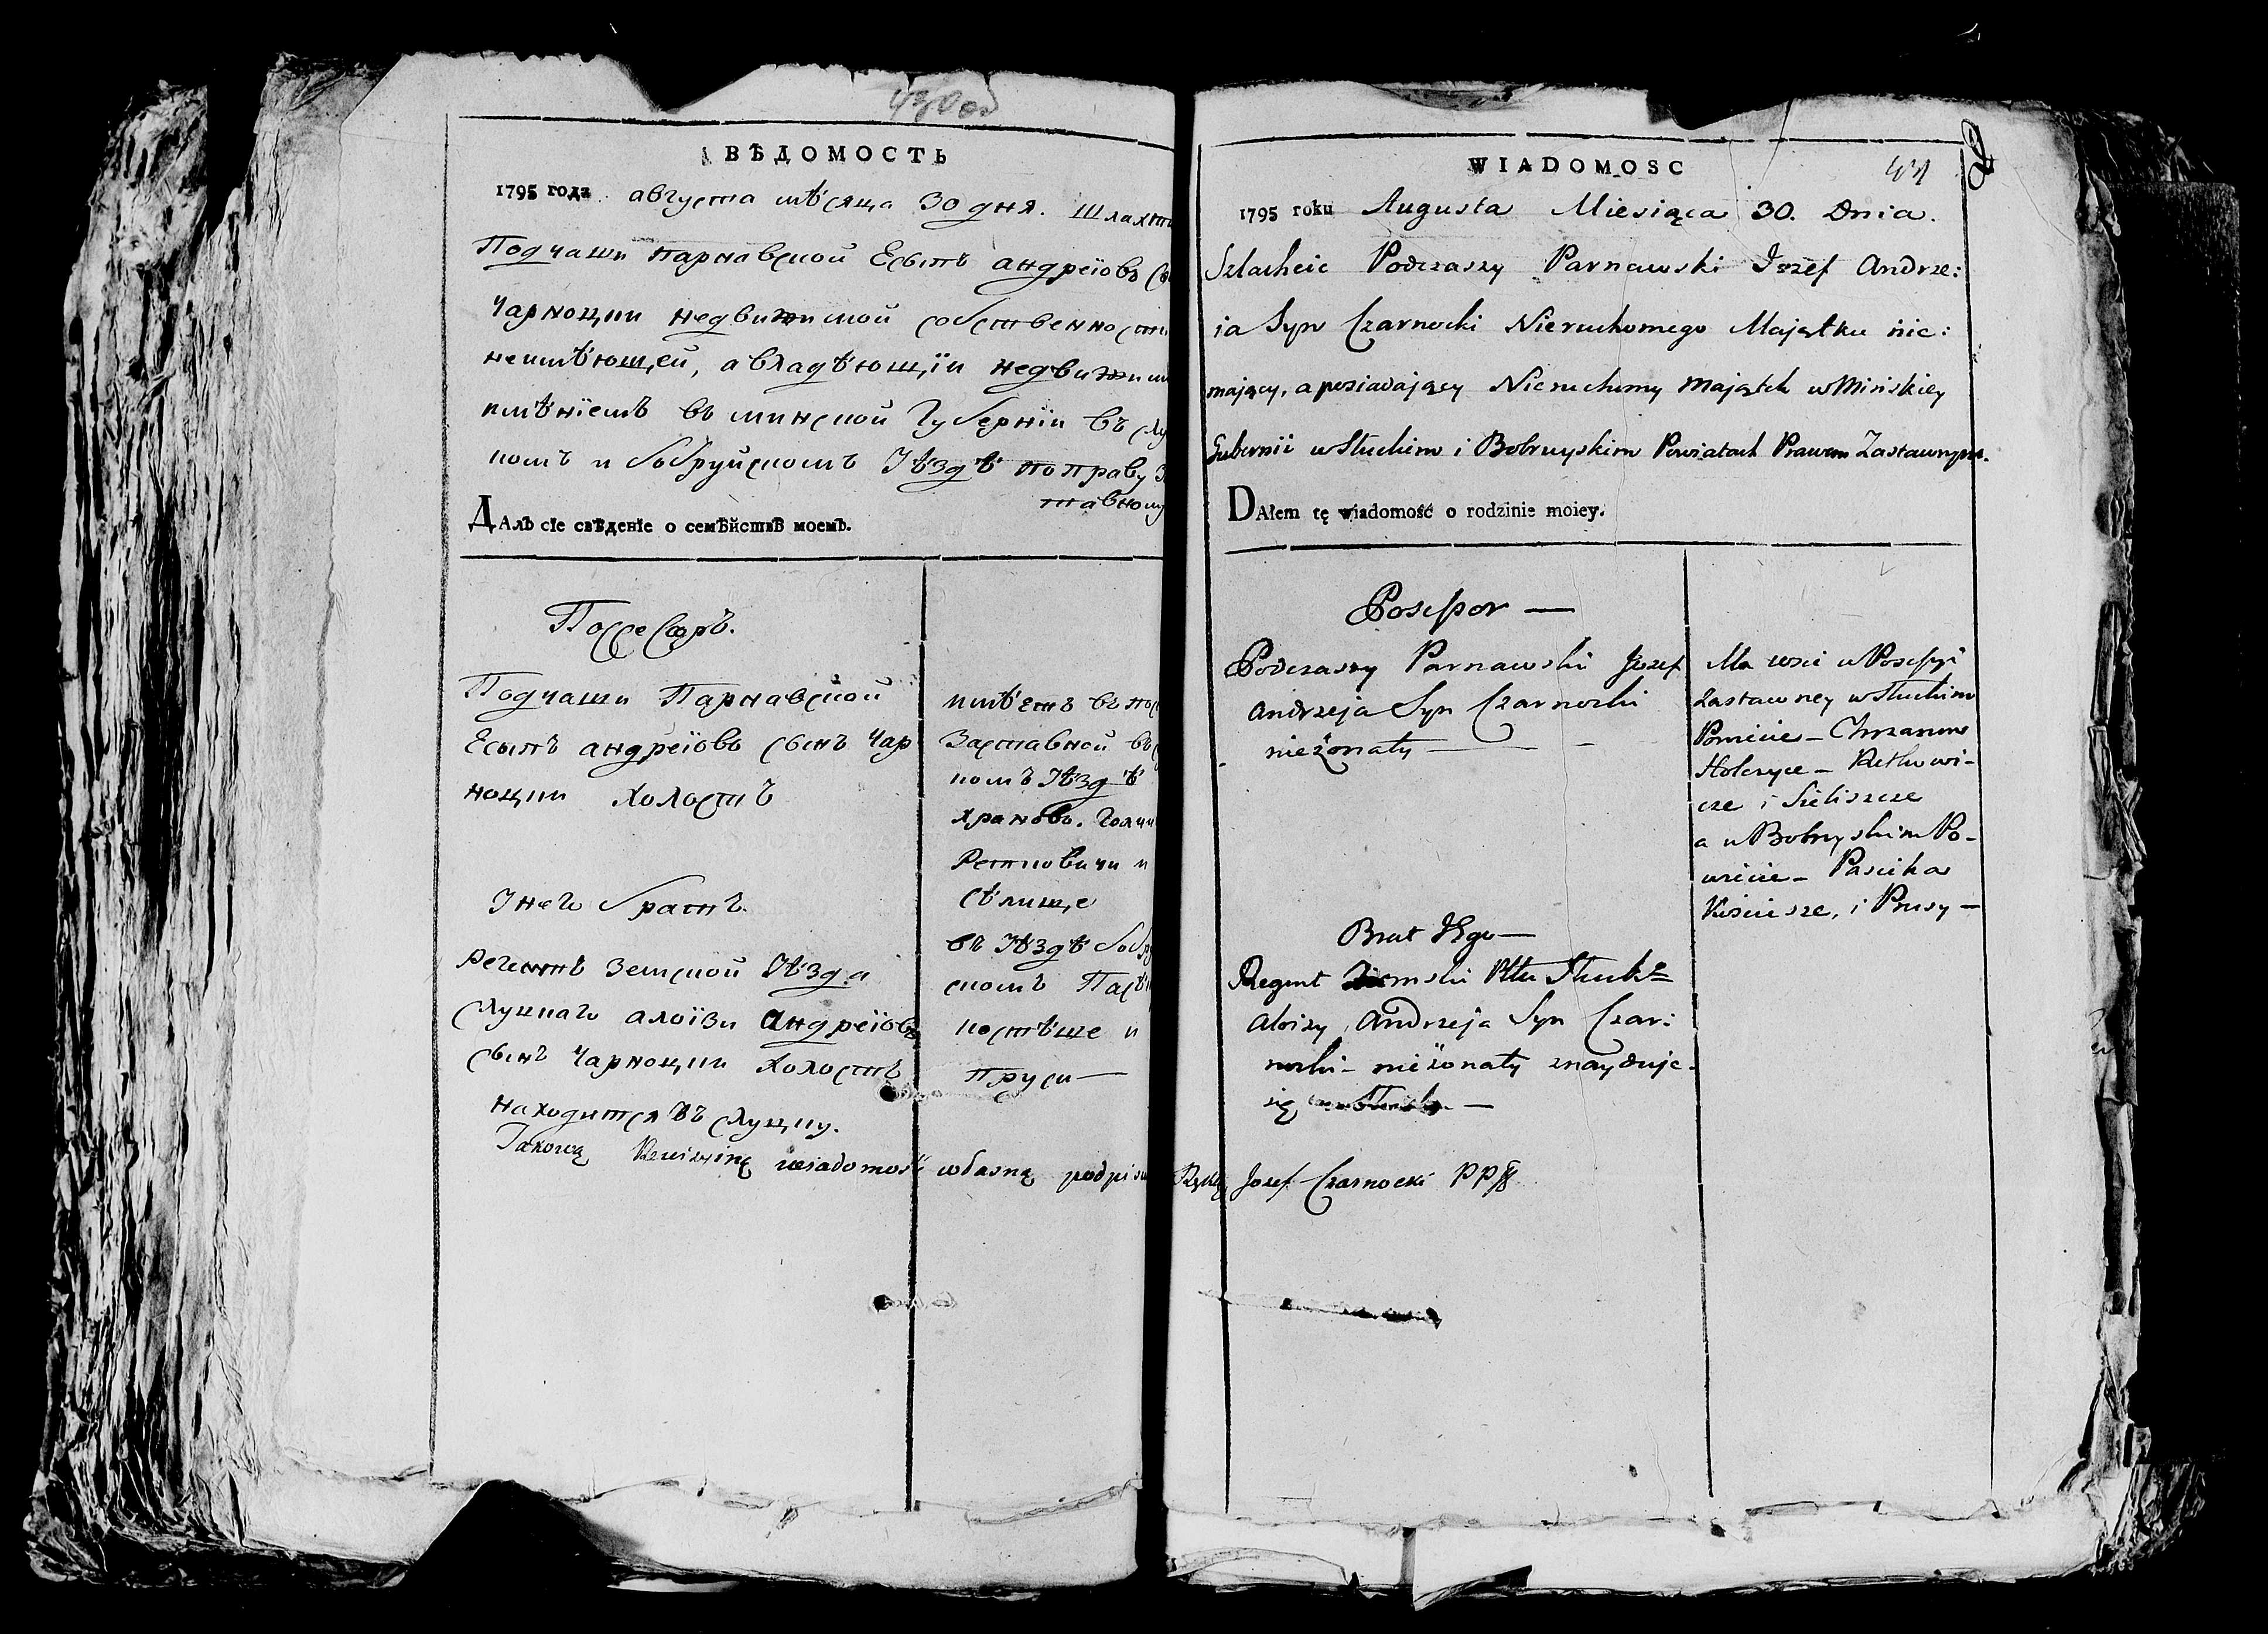 ВѢДОМОСТЬ
1795 года августа мѣсяца 30 дня.
Подчаши парнавской Есыпъ андреїовъ
Чарноцки недвижимой собственности
неимѣющей, а владѣющїи
имѣнїемъ въ минской Губернїи въ
комъ и бобруйскомъ Іѣздѣ по праву
тавному
ДАлъ сїе свѣденїе о семѣйствѣ моемъ.
Поссесоръ.
Подчаши Парнавской
Есыпъ андреїовъ сынъ Чар
ноцки холостъ
Інего братъ.
Регентъ Земской Іѣзда
слуцкаго алоїзи андреїовъ
сынъ Чарноцки холостъ
находится въ слуцку.
имѣетъ въ
Заставной
комъ Іѣздѣ
храновъ.
Ретковичи и
Сѣлище
въ Іѣздѣ
скомъ
костѣше и
Пруси —
Takową Rewizyiną wiadomość własną Ręką Jozef Czarnocki PP
WIADOMOSC
44
1795 roku Augusta Miesiąca 30. Dnia.
Szlachcic Podczaszy Parnawski Jozef Andrze:
ia Syn Czarnocki Nieruchomego Majątku nie:
mający, a posiadający Nieruchomy Majątek w Minskiey
Gubernii w Słuckim i Bobruyskim Powiatach Prawem Zastawnym.
DAłem tę wiadomość o rodzinie moiey.
Possessor —
Podczaszy Parnawski Jozef
Andrzeja Syn Czarnocki
nieżonaty —
Brat Jego —
Regent Ziemski Pttu Słuck:
Aloizy Andrzeja Syn Czar:
nocki — nieżonaty znayduje
się
Ma wsi w Possessyi
Zastawney w Słuckim
Powiecie — Chranow
Holczyce — Retkowi-
cze i Sieliszcze
a w Bobruyskim Po-
wiecie — Pasieka
Kościesze, i Prusy —